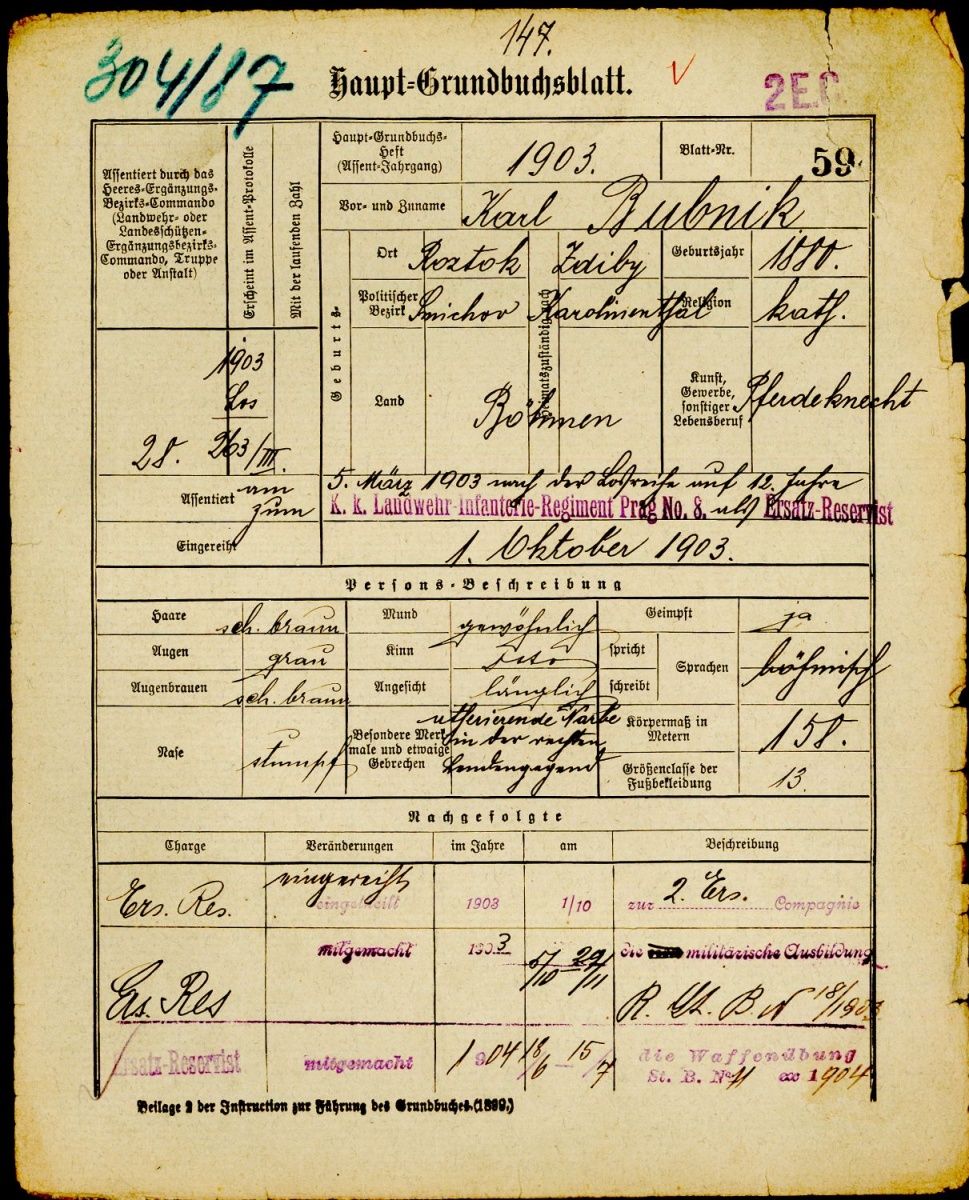 147.
304/87
Haupt-Grundbuchsblatt.
2 E.C.
Assentiert durch das
Heeres-Ergänzungs-
Bezirks-Commando
(Landwehr- oder
Landesschützen-
Ergänzungsbezirks-
Commando, Truppe
oder Anstalt)
Erscheint im Assent-Protokolle
Mit der laufenden Zahl
Haupt-Grundbuchs-
Heft
(Assent-Jahrgang)
1903.
Blatt-Nr.
59.
Vor- und Zuname
Karl Bubnik
Geburts-
Ort
Roztok
Zdiby
Geburtsjahr
1880.
Politischer
Bezirk
Smichov
Heimatszuständig nach
Karolinenthal
Religion
kath.
Land
Böhmen
Kunst,
Gewerbe,
sonstiger
Lebensberuf
Pferdeknecht
1903
Los
28. 263/III.
Assentiert
am
5. März 1903 nach der Losreihe auf 12 Jahre
zum
K. k. Landwehr-Infanterie-Regiment Prag No. 8. als Ersatz-Reservist
Eingereiht
1. Oktober 1903.
Persons-Beschreibung
Haare
sch. braun
Mund
gewöhnlich
Geimpft
ja
Augen
grau
Kinn
spricht
Sprachen
böhmisch
Augenbrauen
sch. braun
Angesicht
länglich
schreibt
Nase
stumpf
Besondere Merk-
male und etwaige
Gebrechen
Narbe
in der rechten
Lendengegend
Körpermaß in
Metern
158.
Größenclasse der
Fußbekleidung
13.
Nachgefolgte
Charge
Veränderungen
im Jahre
am
Beschreibung
Ers. Res.
eingereiht
eingetheilt
1903
1/10
zur 2. Ers. Compagnie
mitgemacht
1903
5/10 – 29/11
die militärische Ausbildung
Ers. Res
R. St. B. N 18/1903
Ersatz-Reservist
mitgemacht
1904
18/6 – 15/7
die Waffenübung
St. B. No 11 ex 1904
Beilage 2 der Instruction zur Führung des Grundbuches. (1899.)